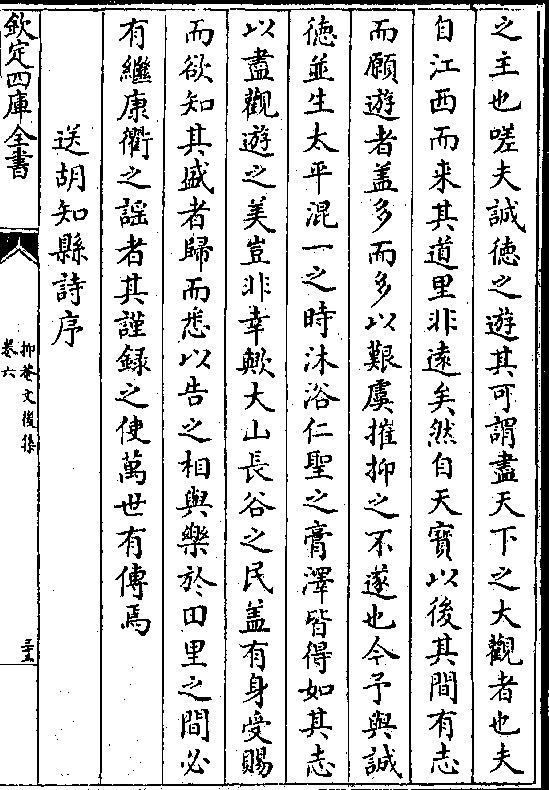 之主也嗟夫誠徳之遊其可謂盡天下之大觀者也夫
自江西而来其道里非遠矣然自天寳以後其間有志
而願遊者盖多而多以艱虞摧抑之不遂也今予與誠
徳並生太平混一之時沐浴仁聖之膏澤皆得如其志
以盡觀遊之美豈非幸歟大山長谷之民盖有身受賜
而欲知其盛者歸而悉以告之相與樂於田里之間必
有繼康衢之謡者其謹録之使萬世有傳焉
送胡知縣詩序
欽定四庫全書
抑菴文後集
卷六
三五